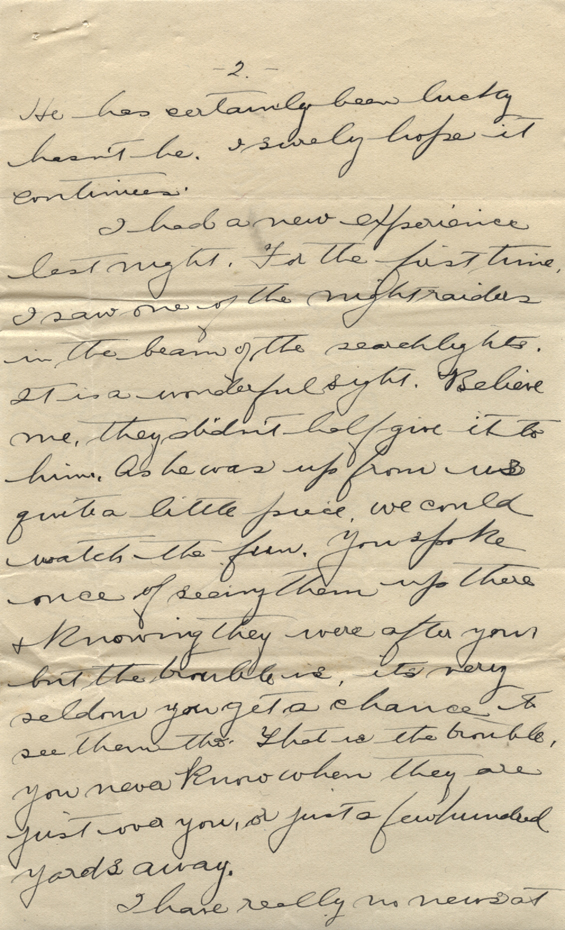 -2.-
He has certainly been lucky
hasn't he. I surely hope it
continues.
I had a new experience
last night. For the first time,
I saw one of the nightraiders
in the beam of the searchlights.
It is a wonderful sight. Believe
me, they didn't half give it to
him. As he was up from us
quite a little piece, we could
watch the fun. You spoke
once of seeing them up there
& knowing they were after you
but the trouble is, its very
seldom you get a chance to
see them tho. That is the trouble,
you never know when they are
just over you, or just a few hundred
yards away.
I have really no news at